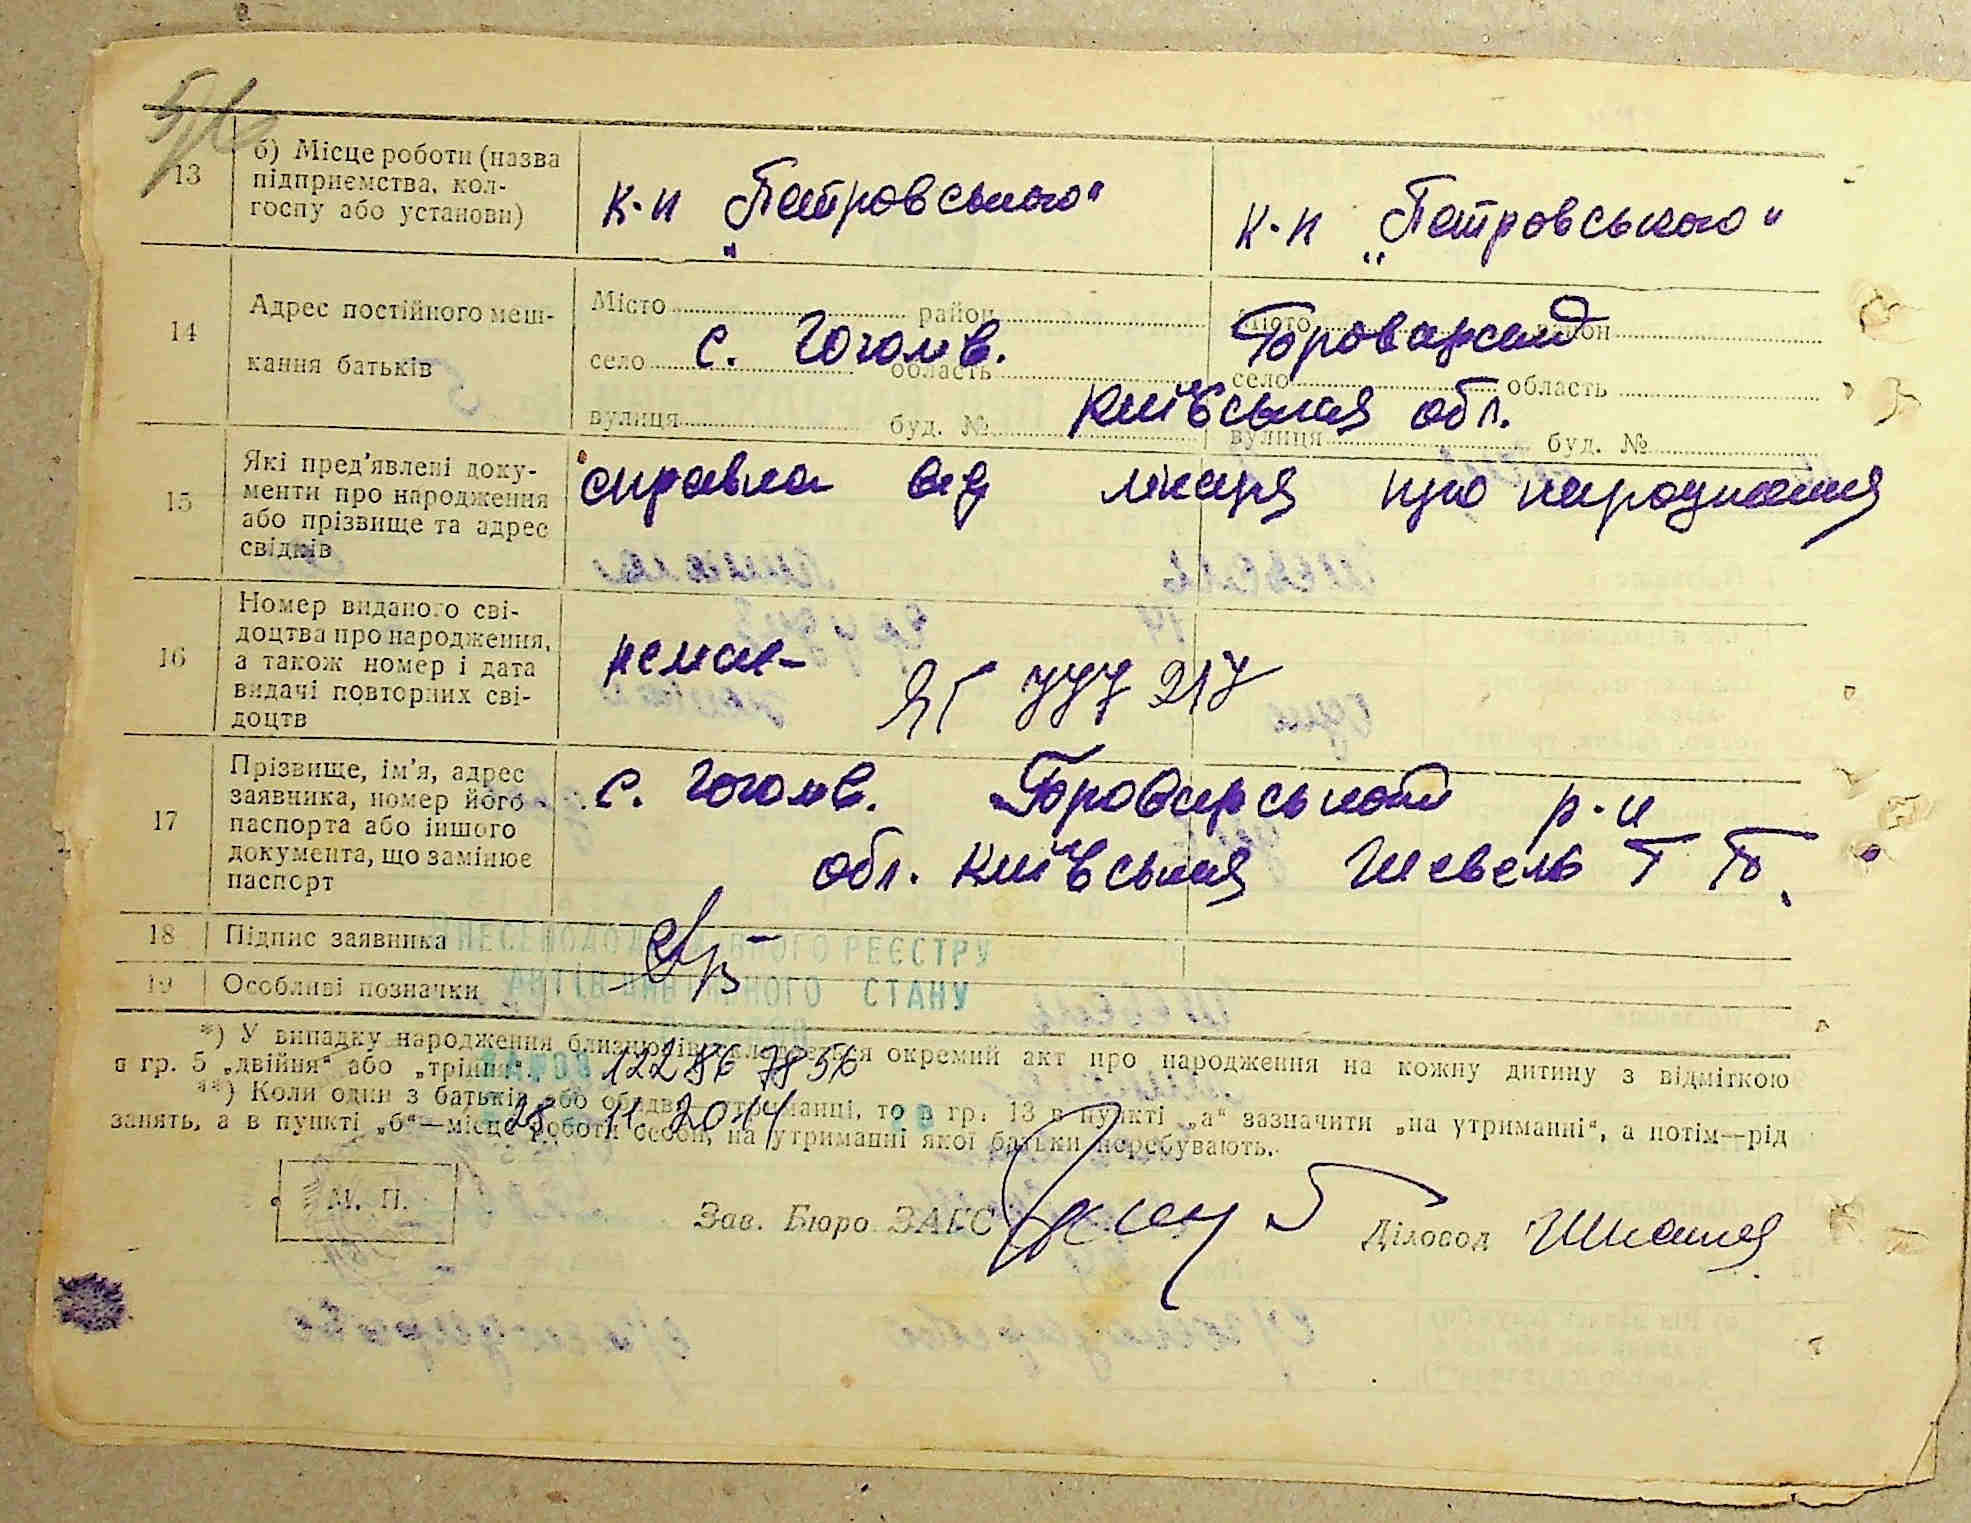 13
б) Місце роботи (назва
підприємства, кол-
госпу або установи)
к-п „Петровського“
к-п „Петровського“
14
Адрес постійного меш-
кання батьків
Місто район
село с. Гоголів. область
вулиця буд. №
Місто район
Броварський
село область
Київська обл.
вулиця буд. №
15
Які пред'явлені доку-
менти про народження
або прізвище та адрес
свідків
справка від лікаря про народження
16
Номер виданого сві-
доцтва про народження,
а також номер і дата
видачі повторних сві-
доцтв
немає
217
17
Прізвище, ім'я, адрес
заявника, номер його
паспорта або іншого
документа, що замінює
паспорт
с. Гоголів. Броварський р-н
обл. Київська Шевель Т Б.
18
Підпис заявника
РЕЄСТРУ
19
Особливі позначки
СТАНУ
*) У випадку народження близнюків складається окремий акт про народження на кожну дитину з відміткою
в гр. 5 „двійня“ або „трійня“.
12286 7856
**) Коли один з батьків або обидва на утриманні, то в гр. 13 в пункті „а“ зазначити „на утриманні“, а потім—рід
28. 11. 2014
занять, а в пункті „б“—місце роботи особи, на утриманні якої батьки перебувають.
М. П.
Зав. Бюро ЗАГС
Діловод